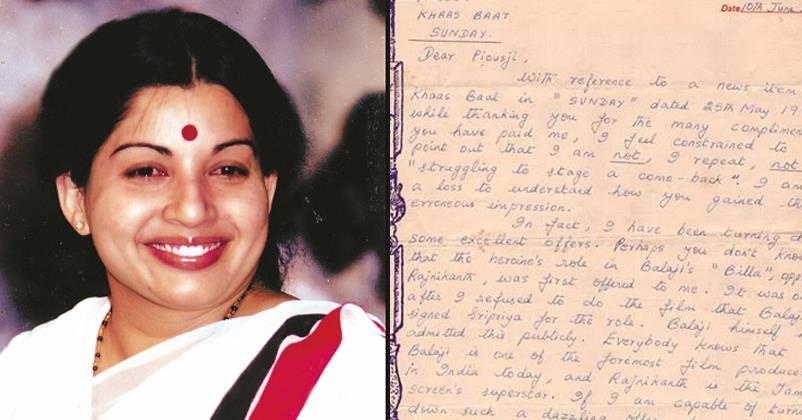 Date 10th June
KHAAS BAAT
SUNDAY.
Dear Piousji,
With reference to a news item
Khaas Baat in "SUNDAY" dated 25th May 19
while thanking you for the many complimen
you have paid me, I feel constrained to
point out that I am not, I repeat, not
"struggling to stage a come-back". I am
a loss to understand how you gained th
erroneous impression.
In fact, I have been turning d
some excellent offers. Perhaps you don't know
that the heroine's role in Balaji's "Billa", opp
Rajnikanth, was first offered to me. It was o
after I refused to do the film that Balaji
signed Sripriya for the role. Balaji himself
admitted this publicly. Everybody knows that
Balaji is one of the foremost film produce
in India today, and Rajnikanth is the Tam
screen's superstar. If I am capable of turn
down such a dazzling offer